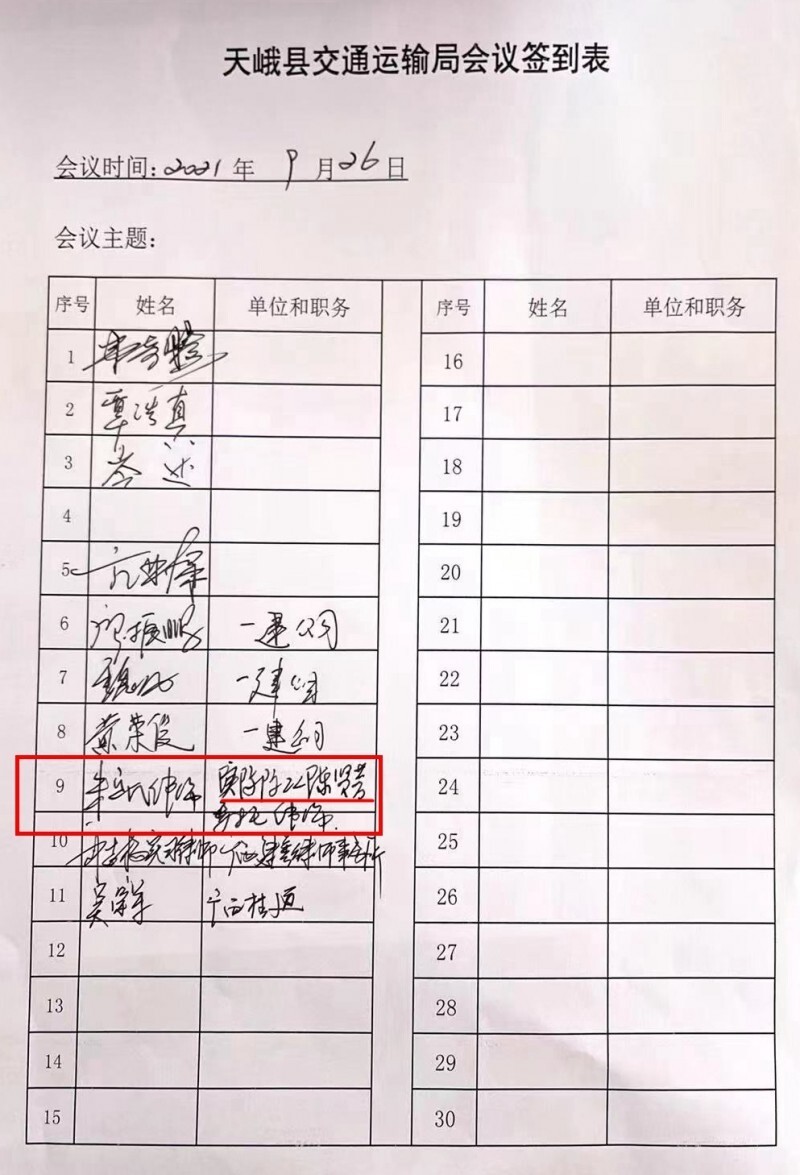 天峨县交通运输局会议签到表
会议时间:2021年 9月26日
会议主题:
序号 姓名 单位和职务 序号 姓名 单位和职务
1 16
2 覃浩真 17
3 18
4 19
5 20
6 振鹏 一建公司 21
7 一建公司 22
8 黄荣俊 一建公司 23
9 律师 实际施工陈贤昔 24
委托律师
10 律师事务所 25
11 吴宗军 广西桂通 26
12 27
13 28
14 29
15 30